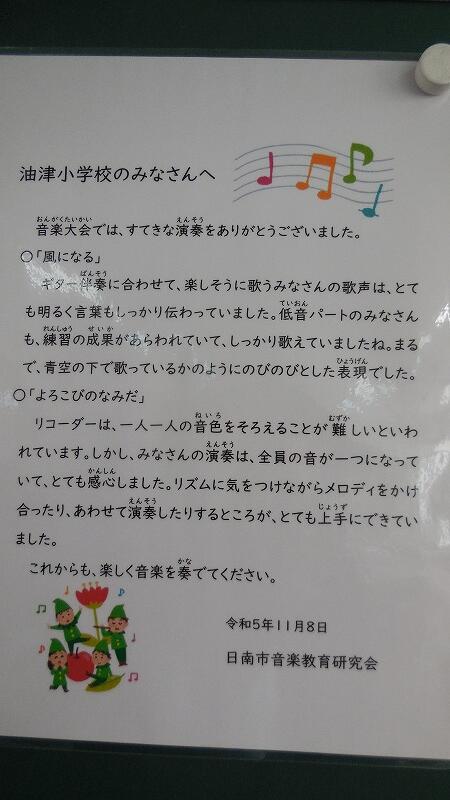 油津小学校のみなさんへ
音楽大会では、すてきな演奏をありがとうございました。
○「風になる」
ギター伴奏に合わせて、楽しそうに歌うみなさんの歌声は、とて
も明るく言葉もしっかり伝わっていました。低音パートのみなさん
も、練習の成果があらわれていて、しっかり歌えていましたね。まる
で、青空の下で歌っているかのようにのびのびとした表現でした。
○「よろこびのなみだ」
リコーダーは、一人一人の音色をそろえることが難しいといわ
れています。しかし、みなさんの演奏は、全員の音が一つになって
いて、とても感心しました。リズムに気をつけながらメロディをかけ
合ったり、あわせて演奏したりするところが、とても上手にできてい
ました。
これからも、楽しく音楽を奏でてください。
令和5年11月8日
日南市音楽教育研究会